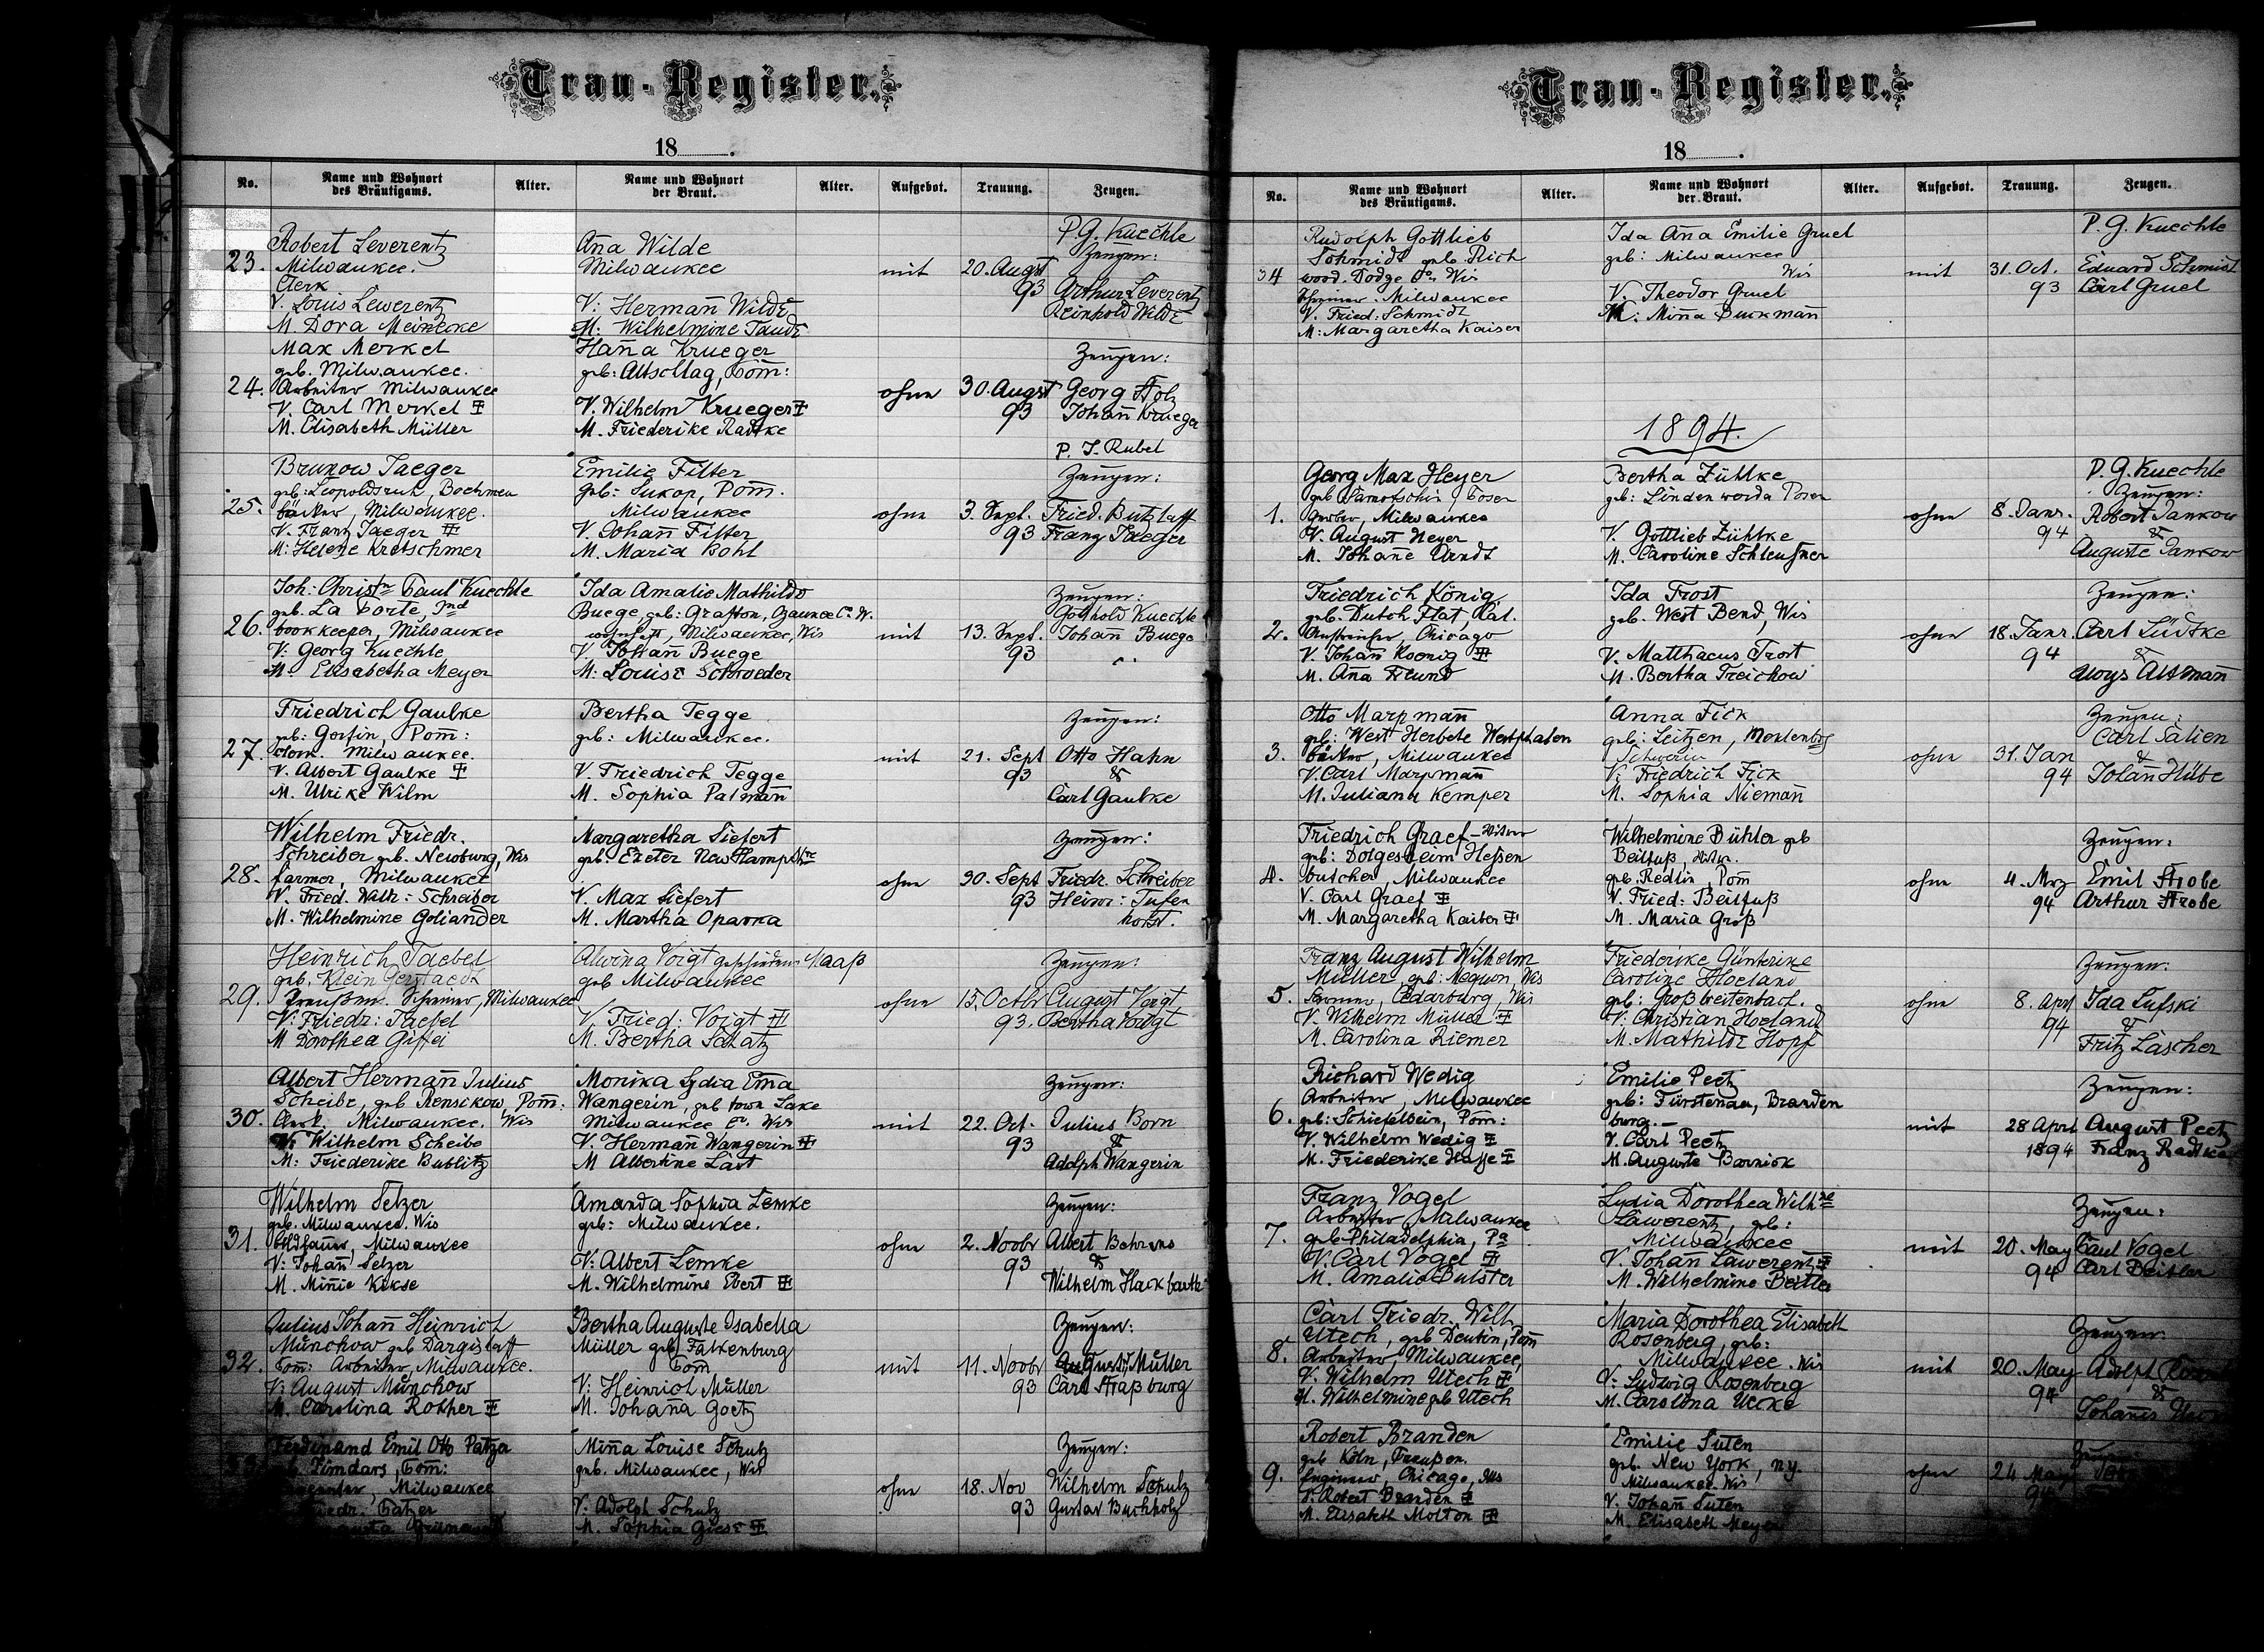 Trau-Register.
18
No.
Name und Wohnort des Bräutigams.
Alter.
Name und Wohnort der Braut.
Alter.
Aufgebot.
Trauung.
Zeugen.
P. G. Kuechle
23.
Robert Leverentz
Milwaukee.
Clerk
V. Louis Lewerentz
M. Dora Meinecke
Aña Wilde
Milwaukee
V: Hermañ Wilde
M: Wilhelmine Taude
mit
20. Augst
93
Zeugen:
Arthur Leverentz
Reinhold Wilde
24.
Max Merkel
geb. Milwaukee.
Arbeiter Milwaukee
V. Carl Merkel
M. Elisabeth Müller
Haña Krueger
geb: Altschlag, Pom:
V. Wilhelm Krueger
M. Friederike Radtke
ohne
30. Augst
93
Zeugen:
Georg Holz
Johañ Krueger
P. J. Rubel
25.
Brunow Jaeger
geb: Leopoldsruh, Boehmen
bäcker, Milwaukee.
V. Franz Jaeger
M: Helene Kretschmer
Emilie Filter
geb: Sukop, Pom̄.
Milwaukee
V. Johañ Filter
M. Maria Bohl
ohne
3. Sept.
93
Zeugen:
Fried. Butzlaff
Franz Jaeger
26.
Joh: Christn Paul Kuechle
geb. La Porte, Ind
bookkeeper, Milwaukee
V: Georg Kuechle
M. Elisabetha Meyer
Ida Amalie Mathilde
Buege, geb: Grafton, Ozaukee Co W.
wohnhaft, Milwaukee, Wis
V. Johañ Buege
M: Louise Schroeder
mit
13. Sept.
93
Zeugen:
Gotthold Kuechle
Johañ Buege
27.
Friedrich Gaulke
geb: Gorfin, Pom:
Milwaukee.
V. Albert Gaulke
M. Ulrike Wilm
Bertha Tegge
geb: Milwaukee.
V. Friedrich Tegge
M. Sophia Palmañ
mit
21. Sept
93
Zeugen:
Otto Hahn
&
Carl Gaulke
28.
Wilhelm Friedr.
Schreiber geb. Newburg, Wis
farmer, Milwaukee
V. Fried. Wilh: Schreiber
M. Wilhelmine Goliander
Margaretha Siefert
geb. Exeter New Hampshre
V. Max Siefert
M. Martha Oparka
ohne
30. Sept
93
Zeugen:
Friedr. Schreiber
Heinr: Tufen
horst.
29.
Heinrich Taebel
geb. Klein Gerstaedt
Preußen. Schreiner, Milwaukee
V: Friedr: Taebel
M Dorothea Giffei
Alvina Voigt geschiedene Maaß
geb Milwaukee
V. Fried: Voigt
M. Bertha Schatz
ohne
15. Octbr
93.
Zeugen:
August Voigt
Bertha Voigt
30.
Albert Hermañ Julius
Scheibe, geb Rensekow, Pom̄:
Clerk. Milwaukee. Wis
V: Wilhelm Scheibe
M: Friederike Bublitz
Monika Lydia Em̄a
Wangerin, geb town Lake
Milwaukee Co. Wis
V: Hermañ Wangerin
M Albertine Last
mit
22. Oct.
93
Zeugen:
Julius Born
&
Adolph Wangerin
31.
Wilhelm Selzer
geb. Milwaukee. Wis
Milwaukee
V: Johañ Selzer
M. Miñie Kikse
Amanda Sophia Lemke
geb: Milwaukee.
V: Albert Lemke
M. Wilhelmine Ebert
ohne
2. Novbr
93
Zeugen:
Albert Behrens
&
Wilhelm Hackbarth
32.
Julius Johañ Heinrich
Münchow geb Dargislaff
Pom: Arbeiter, Milwaukee.
V: August Münchow
M. Carolina Rother
Bertha Auguste Isabella
Müller geb Falkenburg
Pom
V: Heinrich Müller
M. Johaña Goetz
mit
11. Novbr
93
Zeugen:
August Müller
Carl Straßburg
Ferdinand Emil Otto Patzer
Timdars, Pom:
Milwaukee
Friedr. Patzer
Miña Louise Schulz
geb. Milwaukee, Wis
V: Adolph Schulz
M. Sophia Giese
ohne
18. Nov
93
Zeugen:
Wilhelm Schulz
Gustav Buchholz
Trau-Register.
18
No.
Name und Wohnort des Bräutigams.
Alter.
Name und Wohnort der Braut.
Alter.
Aufgebot.
Trauung.
Zeugen.
P. G. Kuechle
34
Rudolph Gottlieb
Schmidt geb. Rich
wood. Dodge Co. Wis
Milwaukee
V. Fried: Schmidt
M: Margaretha Kaiser
Ida Aña Emilie Gruel
geb: Milwaukee
Wis
V. Theodor Gruel
M: Miña Buckmañ
mit
31. Oct.
93
Eduard Schmidt
Carl Gruel
1894.
P. G. Kuechle
1.
Georg Max Heyer
geb Samotschin, Posen
Gerber, Milwaukee
V. August Heyer
M. Johañe Arndt
Bertha Zühlke
geb: Lindenwerda Posen
V. Gottlieb Zühlke
M. Caroline Schleußner
ohne
8. Janr.
94
Zeugen:
Robert Jankow
&
Auguste Jankow
2.
Friedrich König
geb. Dutch Flat, Cal.
Anstreicher, Chicago
V. Johañ Koenig
M. Aña Freund
Ida Frost
geb. West Bend, Wis
V. Matthaeus Frost
M. Bertha Treichow
ohne
18. Janr.
94
Zeugen:
Carl Lüdtke
&
Aloys Altmañ
3.
Otto Marpmañ
geb: West Herbede Westphalen
bäcker, Milwaukee
V. Carl Marpmañ
M. Juliana Kemper
Anna Fick
geb: Leizen, Mecklenbrg
Schwerin
V: Friedrich Fick
M. Sophia Niemañ
ohne
31. Jan
94
Zeugen:
Carl Salien
&
Johañ Hübe
4.
Friedrich Graef - Witwer
geb: Dolgesheim Heßen
butcher, Milwaukee
V. Carl Graef
M. Margaretha Kaiber
Wilhelmine Bühler geb
Beilfuß, Witwe.
geb. Redlin, Pom
V. Fried: Beilfuß
M. Maria Groß
ohne
4. Mrz
94
Zeugen:
Emil Strobe
Arthur Strobe
5.
Franz August Wilhelm
Müller, geb: Mequon, Wis
Farmer, Cedarburg, Wis
V. Wilhelm Müller
M. Carolina Riemer
Friederike Günterike
Caroline Hoeland
geb: Großbreitenbach.
V: Christian Hoeland
M. Mathilde Hopf
ohne
8. Aprl
94
Zeugen:
Ida Lufski
&
Fritz Lascher
6.
Richard Wedig
Arbeiter, Milwaukee
geb: Schiefelbein, Pom:
V. Wilhelm Wedig
M. Friederike Hasse
Emilie Peetz
geb: Fürstenau, Branden
burg.
V. Carl Peetz
M. Auguste Barnick
mit
28 Aprl
1894
Zeugen:
August Peetz
Franz Radtke
7.
Franz Vogel
Arbeiter Milwaukee
geb Philadelphia, Pa
V. Carl Vogel
M. Amalie Bulster
Lydia Dorothea Wilhne
Lawerentz, geb:
Milwaukee
V. Johañ Lawerentz
M. Wilhelmine Beitler
mit
20. May
94
Zeugen:
Paul Vogel
Carl Beitler
8.
Carl Friedr. Wilh
Utech, geb Deutin, Pom
Arbeiter, Milwaukee,
V: Wilhelm Utech
M. Wilhelmine geb Utech
Maria Dorothea Elisabeth
Rosenberg, geb:
Milwaukee. Wis
V: Ludwig Rosenberg
M. Carolina Uecke
mit
20. May
94
Zeugen:
Adolph
&
Johañes
9.
Robert Branden
geb Köln, Preußen.
Engineer, Chicago, Ills
V: Robert Branden
M. Elisabeth Molton
Emilie Suten
geb. New York, N.y.
Milwaukee. Wis
V. Johañ Suten
M. Elisabeth Meyer
ohne
24 May